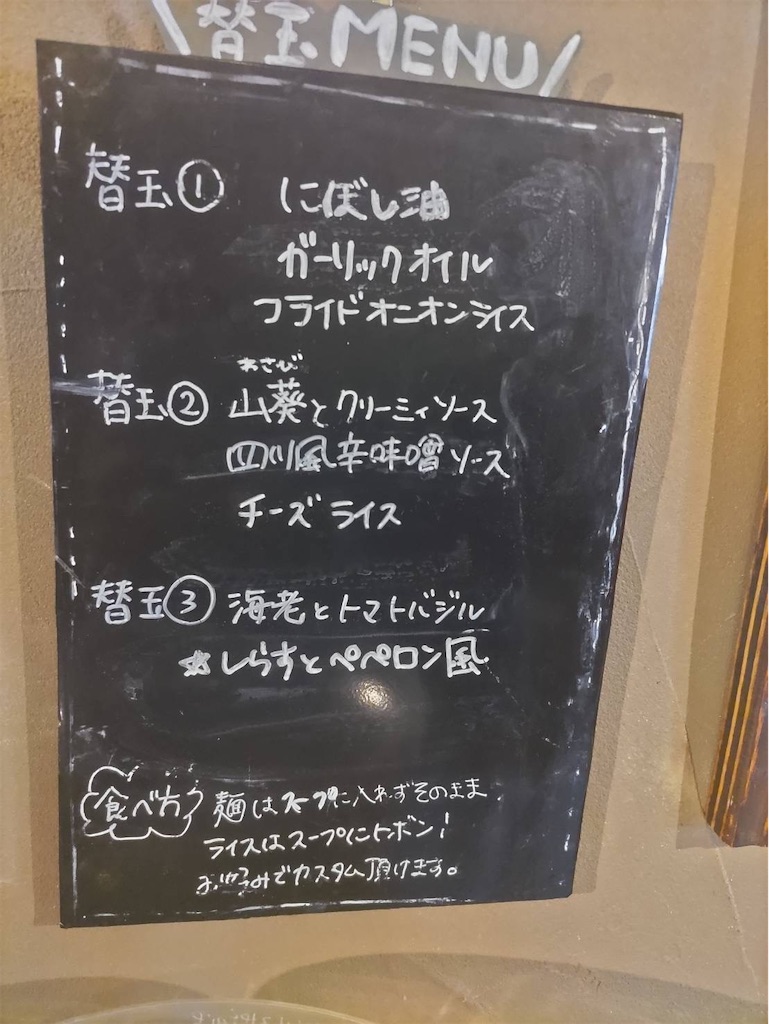 \替玉MENU/
替玉① にぼし油
ガーリックオイル
フライドオニオンライス
わさび
替玉② 山葵とクリーミィソース
四川風辛味噌ソース
チーズライス
替玉③ 海老とトマトバジル
☆しらすとペペロン風
食べ方 麺はスープに入れずそのまま
ライスはスープにトボン!
お好みでカスタム頂けます。